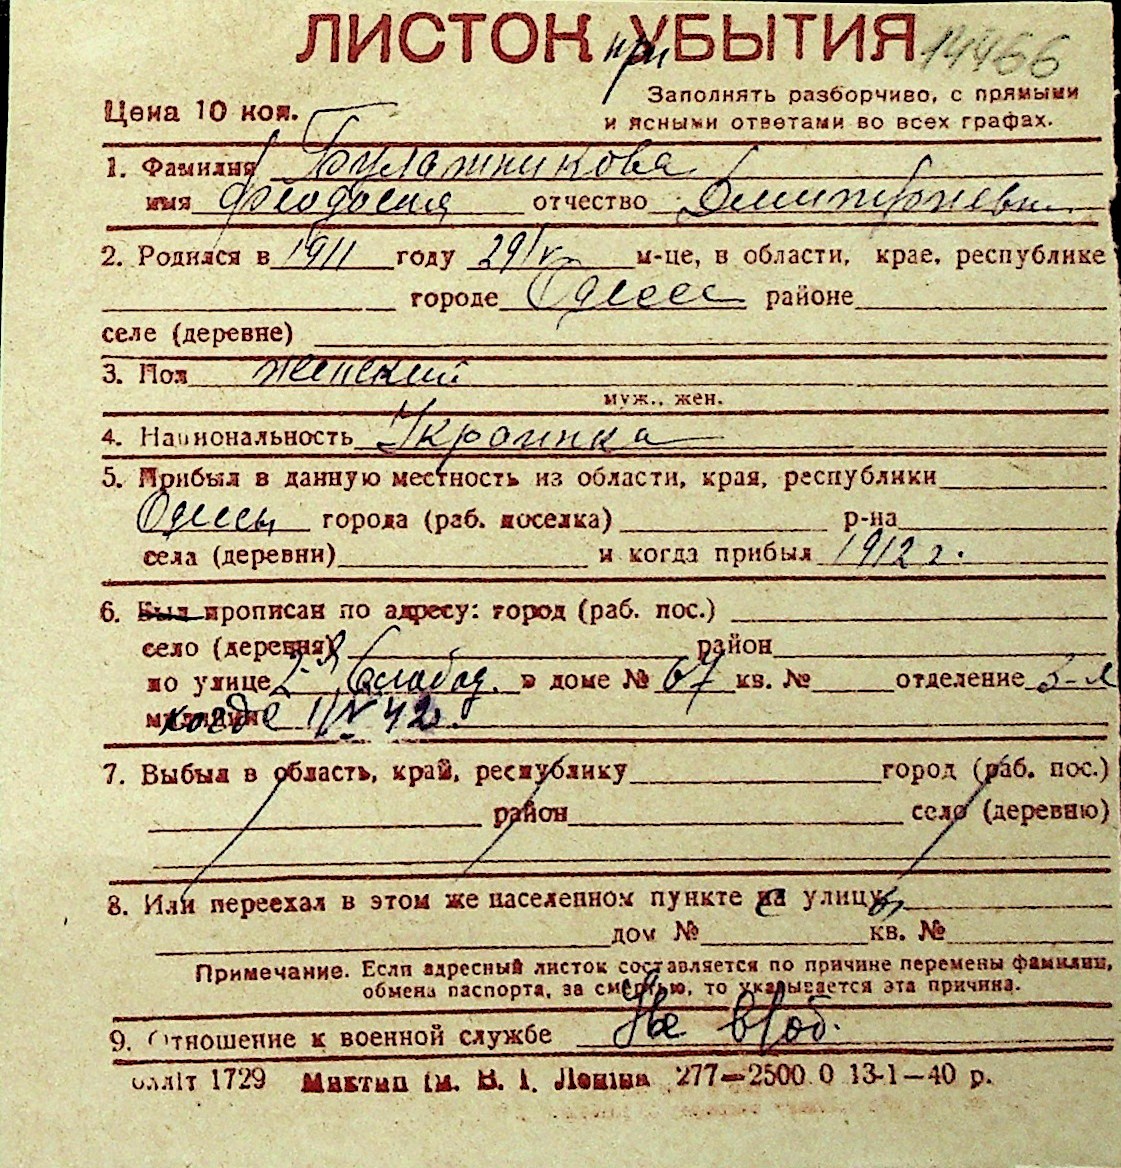 ЛИСТОК при УБЫТИЯ 14466
Цена 10 коп.
Заполнять разборчиво, с прямыми
и ясными ответами во всех графах.
1. Фамилия Булатникова
имя Феодосия отчество Дмитриевн.
2. Родился в 1911 году 29/V м-це, в области, крае, республике
городе Одесс районе
селе (деревне)
3. Пол женский
муж., жен.
4. Национальность Украинка
5. Прибыл в данную местность из области, края, республики
Одессы города (раб. поселка) р-на
села (деревни) и когда прибыл 1912 г.
6. Был прописан по адресу: город (раб. пос.)
село (деревня) район
по улице 2-я Слабод. в доме № 67 кв. № отделение 3-е
милиции когда 1/IV 42
7. Выбыл в область, край, республику город (раб. пос.)
район село (деревню)
8. Или переехал в этом же населенном пункте с улицы
дом № кв. №
Примечание. Если адресный листок составляется по причине перемены фамилии,
обмена паспорта, за смертью, то указывается эта причина.
9. Отношение к военной службе Не в/об.
блліт 1729 Миктип ім. В. І. Леніна 277—2500.0 13-1—40 р.